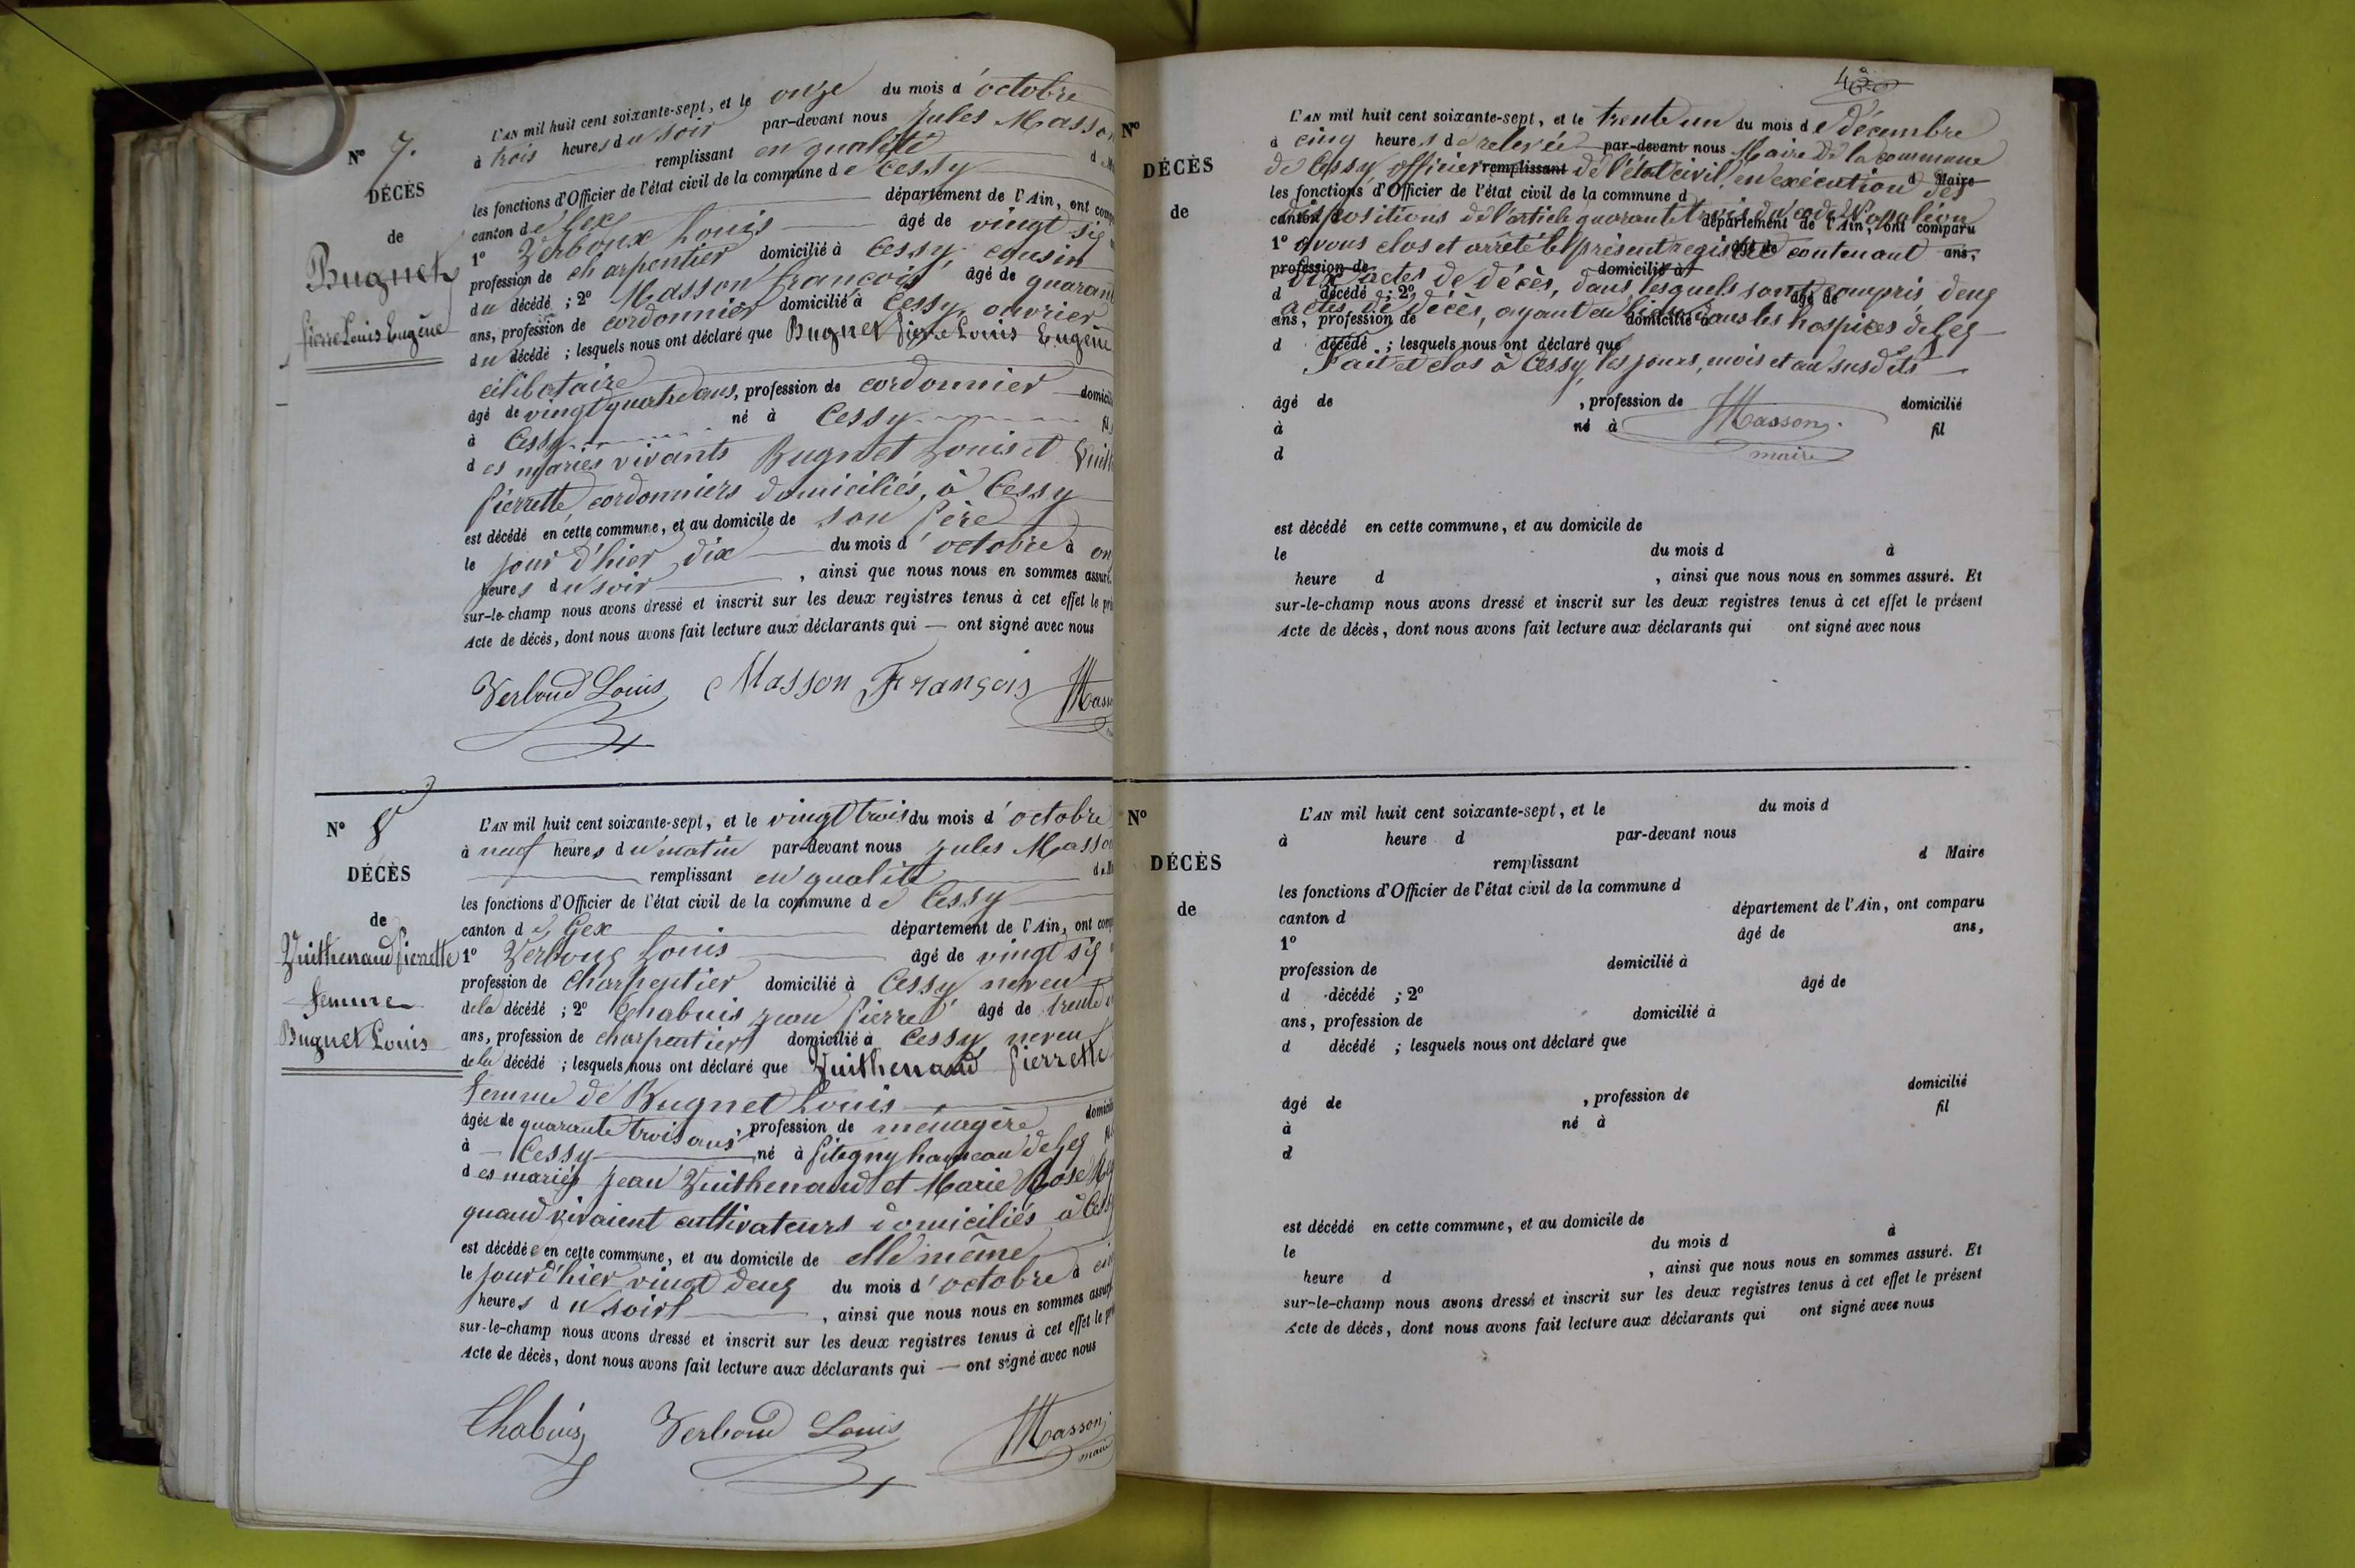 N° 7.
DÉCÈS
de
Bugnet
Pierre Louis Eugène
L'AN mil huit cent soixante-sept, et le onze du mois d'octobre
à trois heures du soir par-devant nous Jules Masson
remplissant en qualité d
les fonctions d'Officier de l'état civil de la commune de Cessy
canton de Gex département de l'Ain, ont
1° Verboux Louis âgé de vingt six
profession de charpentier domicilié à Cessy, cousin
du décédé ; 2° Masson françois, âgé de
ans, profession de cordonnier domicilié à Cessy, ouvrier
du décédé ; lesquels nous ont déclaré que Bugnet Pierre Louis Eugène
célibataire
âgé de vingt quatre ans, profession de cordonnier
à Cessy né à Cessy
des mariés vivants Bugnet Louis et
Pierrette, cordonniers domiciliés, à Cessy
est décédé en cette commune, et au domicile de son Père
le jour d'hier dix du mois d'octobre à
heures du soir , ainsi que nous nous en sommes assuré.
sur-le-champ nous avons dressé et inscrit sur les deux registres tenus à cet effet le
Acte de décès, dont nous avons fait lecture aux déclarants qui — ont signé avec nous
Verboud Louis Masson François Masson
N° 8
DÉCÈS
de
Vuithenaud Pierrette
femme
Bugnet Louis
L'AN mil huit cent soixante-sept, et le vingt trois du mois d'octobre
à neuf heures du matin par-devant nous Jules Masson
remplissant en qualité
les fonctions d'Officier de l'état civil de la commune de Cessy
canton de Gex département de l'Ain, ont
1° Verboux Louis âgé de vingt six
profession de charpentier domicilié à Cessy neveu
de la décédé ; 2° Chabuis jean Pierre âgé de trente
ans, profession de charpentier domicilié à Cessy neveu
de la décédé ; lesquels nous ont déclaré que Vuithenaud Pierrette
femme de Bugnet Louis
âgée de quarante trois ans, profession de ménagère
à — Cessy né à Pitegny hameau de Gex
des mariés jean Vuithenaud et Marie Rose
quand vivaient cultivateurs domiciliés à Cessy
est décédée en cette commune, et au domicile de elle même
le jour d'hier vingt deux du mois d'octobre à
heures du soir , ainsi que nous nous en sommes
sur-le-champ nous avons dressé et inscrit sur les deux registres tenus à cet effet le
Acte de décès, dont nous avons fait lecture aux déclarants qui — ont signé avec nous
Chabuis Verboud Louis Masson
maire
N°
DÉCÈS
de
L'AN mil huit cent soixante-sept, et le trente un du mois de décembre
à cinq heures de relevée par-devant nous Maire de la commune
de Cessy, officier remplissant de l'état civil, en exécution des d Maire
les fonctions d'Officier de l'état civil de la commune d
dispositions de l'article quarante trois du code Napoléon
canton d département de l'Ain, ont comparu
1° avons clos et arrêté le présent registre contenant âgé de ans,
profession de domicilié à
dix actes de décès, dans lesquels sont compris deux
d décédé ; 2° âgé de
actes de décès, ayant eu lieu dans les hospices de Gex
ans, profession de domicilié à
d décédé ; lesquels nous ont déclaré que
Fait et clos à Cessy, les jours, mois et an susdits
âgé de , profession de Masson domicilié
à né à maire fil
d
est décédé en cette commune, et au domicile de
le du mois d à
heure d , ainsi que nous nous en sommes assuré. Et
sur-le-champ nous avons dressé et inscrit sur les deux registres tenus à cet effet le présent
Acte de décès, dont nous avons fait lecture aux déclarants qui ont signé avec nous
N°
DÉCÈS
de
L'AN mil huit cent soixante-sept, et le du mois d
à heure d par-devant nous
remplissant d Maire
les fonctions d'Officier de l'état civil de la commune d
canton d département de l'Ain, ont comparu
1° âgé de ans,
profession de domicilié à
d décédé ; 2° âgé de
ans, profession de domicilié à
d décédé ; lesquels nous ont déclaré que
âgé de , profession de domicilié
à né à fil
d
est décédé en cette commune, et au domicile de
le du mois d à
heure d , ainsi que nous nous en sommes assuré. Et
sur-le-champ nous avons dressé et inscrit sur les deux registres tenus à cet effet le présent
Acte de décès, dont nous avons fait lecture aux déclarants qui ont signé avec nous